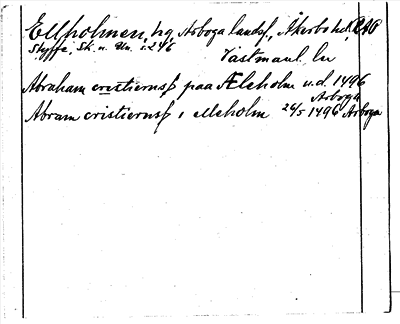 Ellholmen, hg, Arboga landsf., Åkerbo hd, RAÖ
Styffe, Sk. u. Un. s. 246
Västmanl. län
Abraham cristiernsß paa Ælcholm u.d. 1496
Arboga
Abram cristiernsß i elleholm 26/5 1496 Arboga